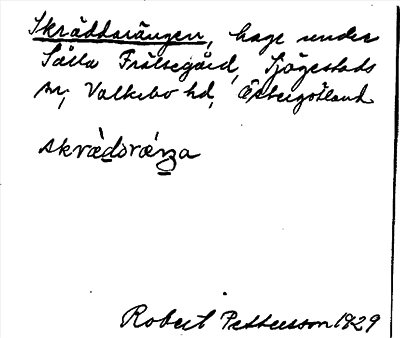 Skräddarängen, hage under
Sålla Frälsegård, Sjögestads
sn, Valkebo hd, Östergötland
skrädsränga
Robert Pettersson 1929